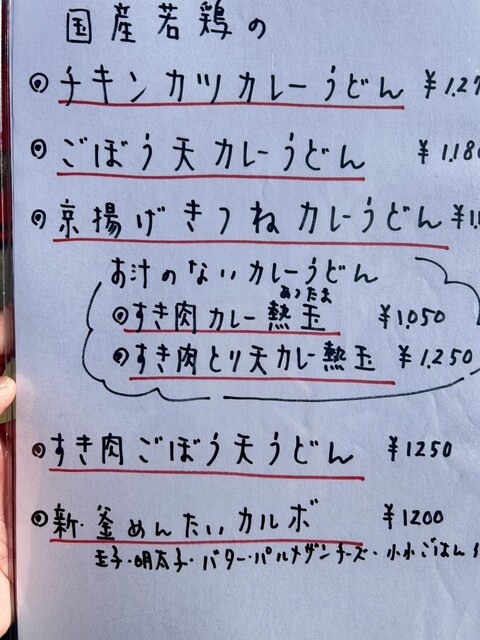 国産若鶏の
◎チキンカツカレーうどん ¥1.27
◎ごぼう天カレーうどん ¥1.180
◎京揚げきつねカレーうどん ¥1.
お汁のないカレーうどん
あつたま
◎すき肉カレー熱玉 ¥1.050
◎すき肉とり天カレー熱玉 ¥1.250
◎すき肉ごぼう天うどん ¥1250
◎新・釜めんたいカルボ ¥1200
玉子・明太子・バター・パルメザンチーズ・小小ごはん